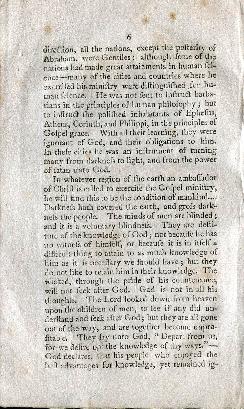 6
direction, all the nations, except the posterity of
Abraham, were Gentiles; although some of the
nations had made great attainments in human sci-
ence—many of the cities and countries where he
exercised his ministry were distinguished for hu-
man science. He was not sent to instruct barba-
rians in the principles of human philosophy; but
to instruct the polished inhabitants of Ephesus,
Athens, Corinth, and Philippi, in the principles of
Gospel grace. With all their learning, they were
ignorant of God, and their obligations to him.
In these cities he was an instrument of turning
many from darkness to light, and from the power
of satan unto God.
In whatever region of the earth an ambassador
of Christ is called to exercise the Gospel ministry,
he will find this to be the condition of mankind.
Darkness hath covered the earth, and gross dark-
ness the people. The minds of men are blinded;
and it is a voluntary blindness. They are desti-
tute of the knowledge of God; not because he has
no witness of himself, or because it is in itself a
difficult thing to attain to as much knowledge of
him as it is necessary we should have; but they
do not like to retain him in their knowledge. The
wicked, through the pride of his countenance,
will not seek after God. God is not in all his
thoughts. The Lord looked down from heaven
upon the children of men, to see if any did un-
derstand and seek after God; but they are all gone
out of the way, and are together become unpro-
fitable. They say unto God, "Depart from us,
for we desire not the knowledge of thy ways."—
God declares, that his people who enjoyed the
best advantages for knowledge, yet remained ig-